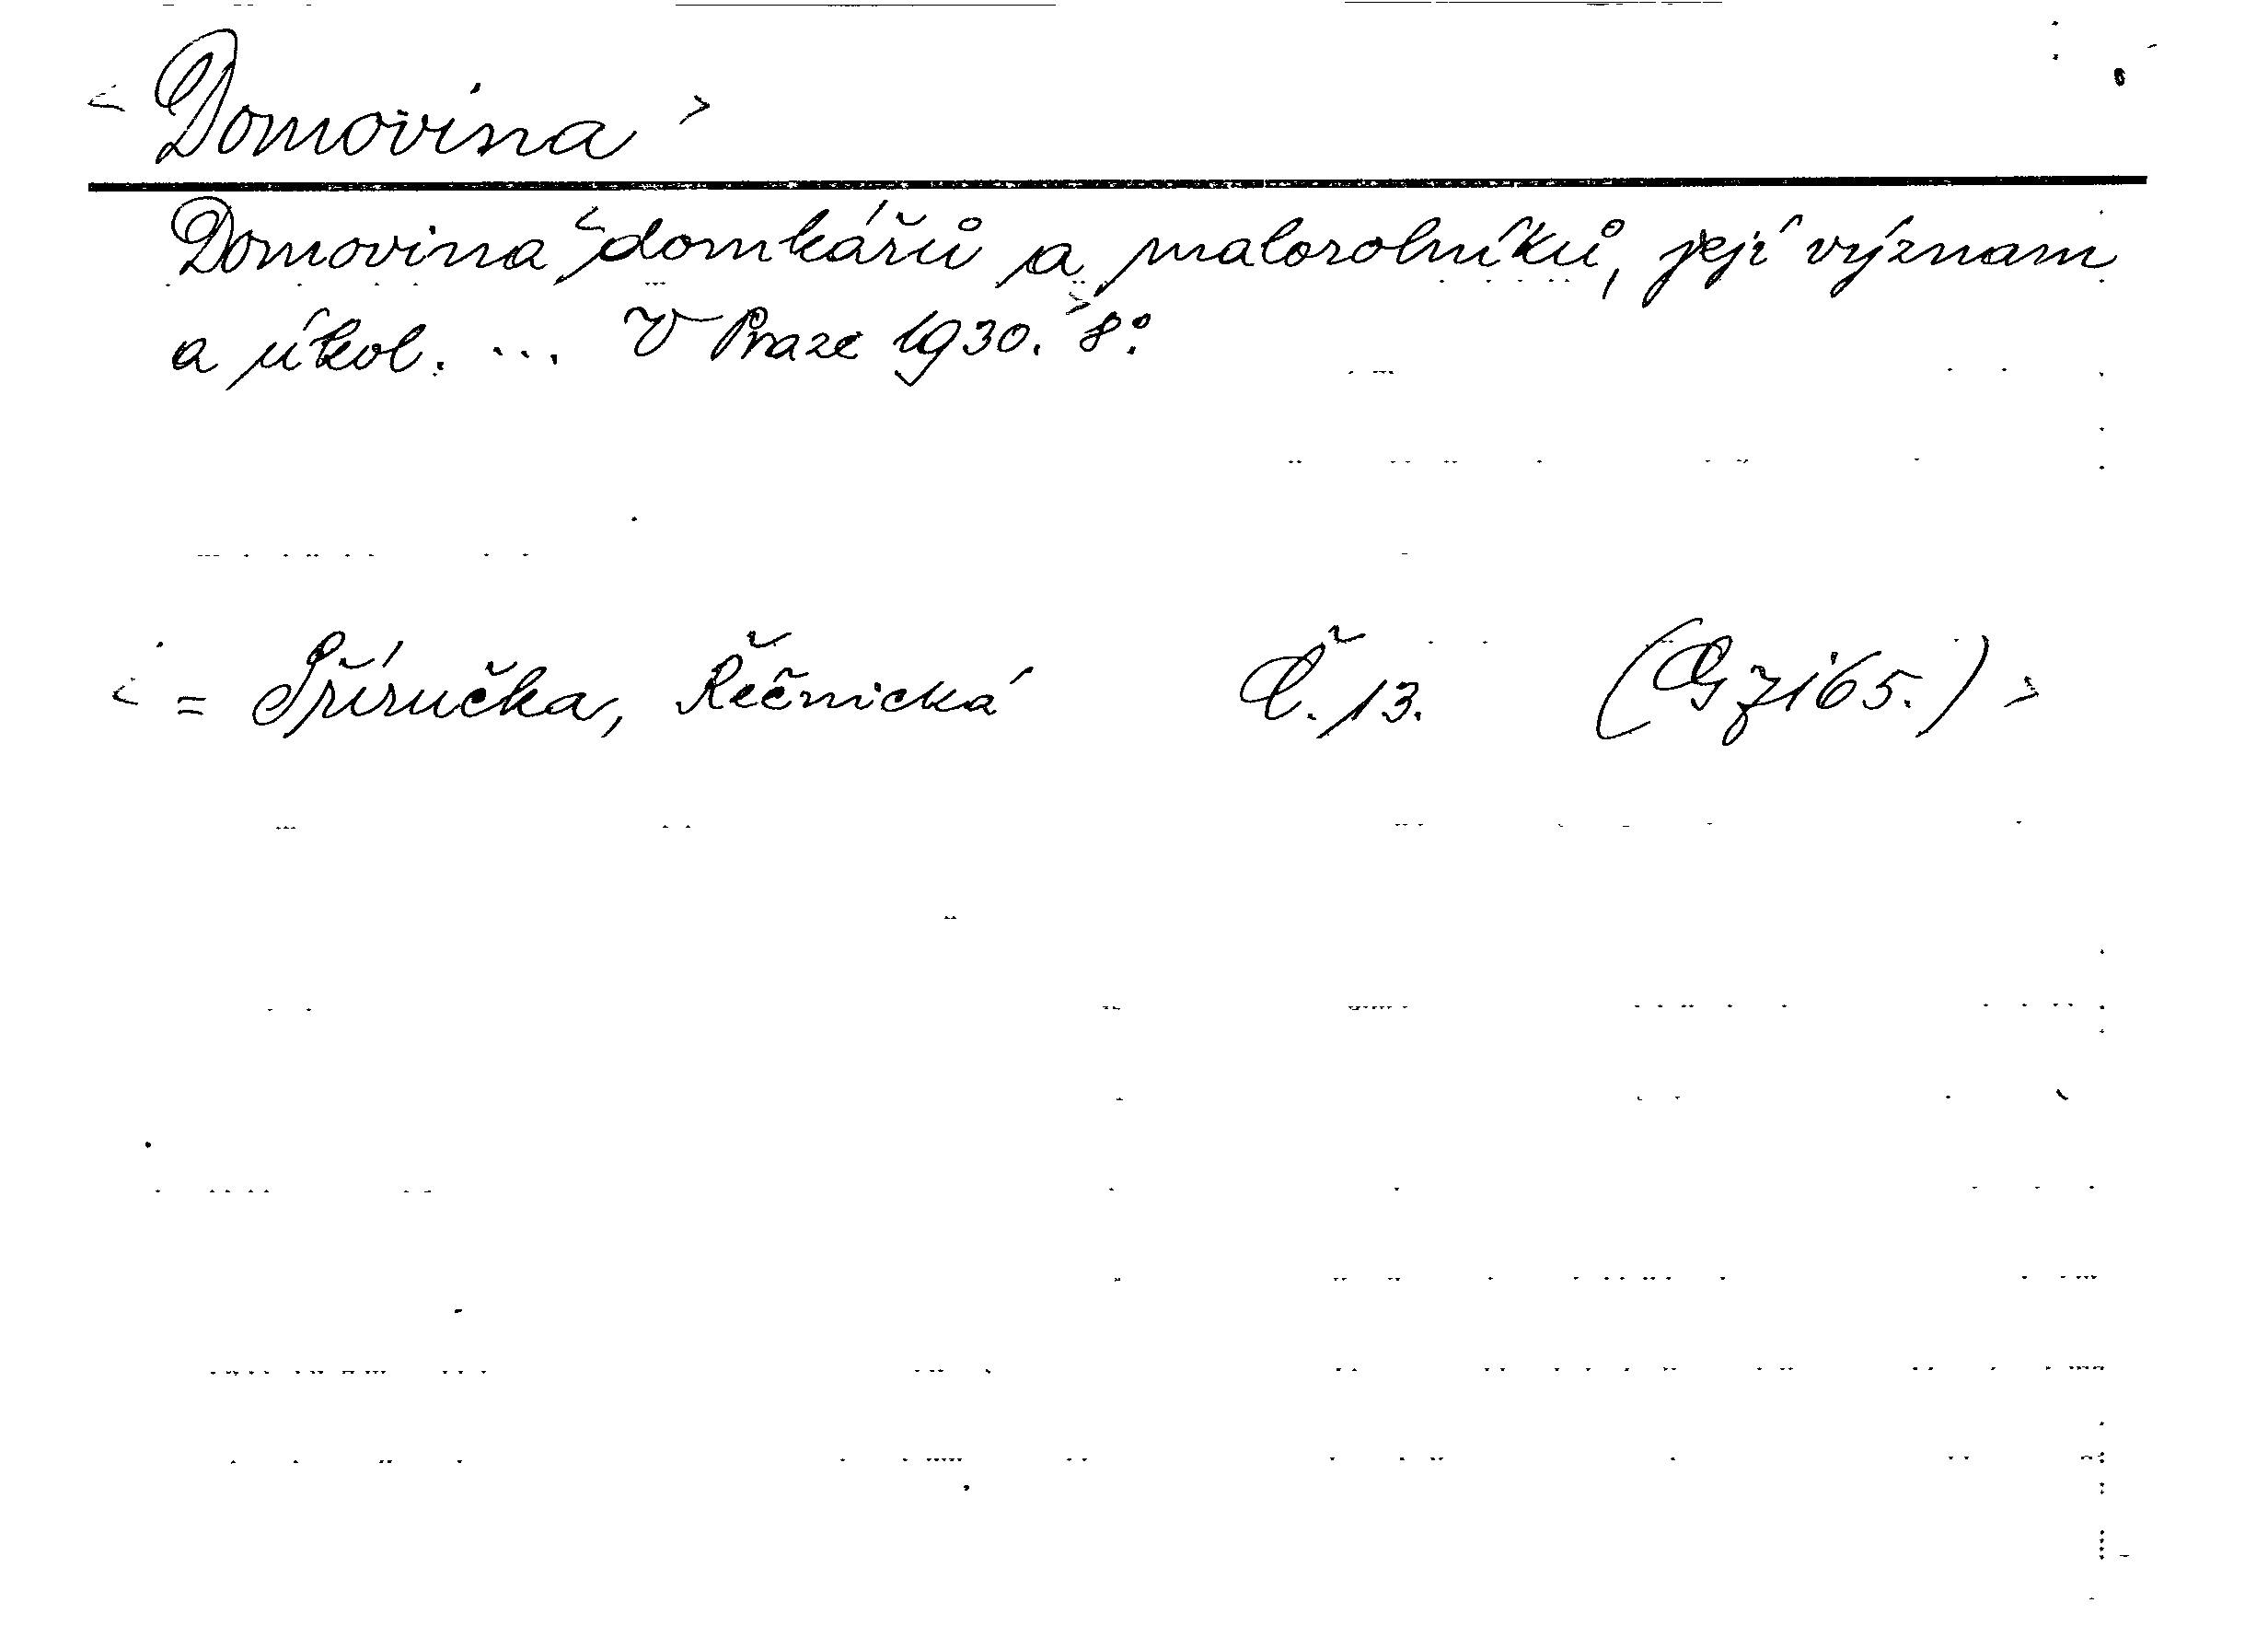 < Domovina >
Domovina < domkářů a malorolníků, její význam
a úkol. ... V Praze 1930. > 8°.
< = Příručka, Řečnická Č. 13. (G 7165.) >